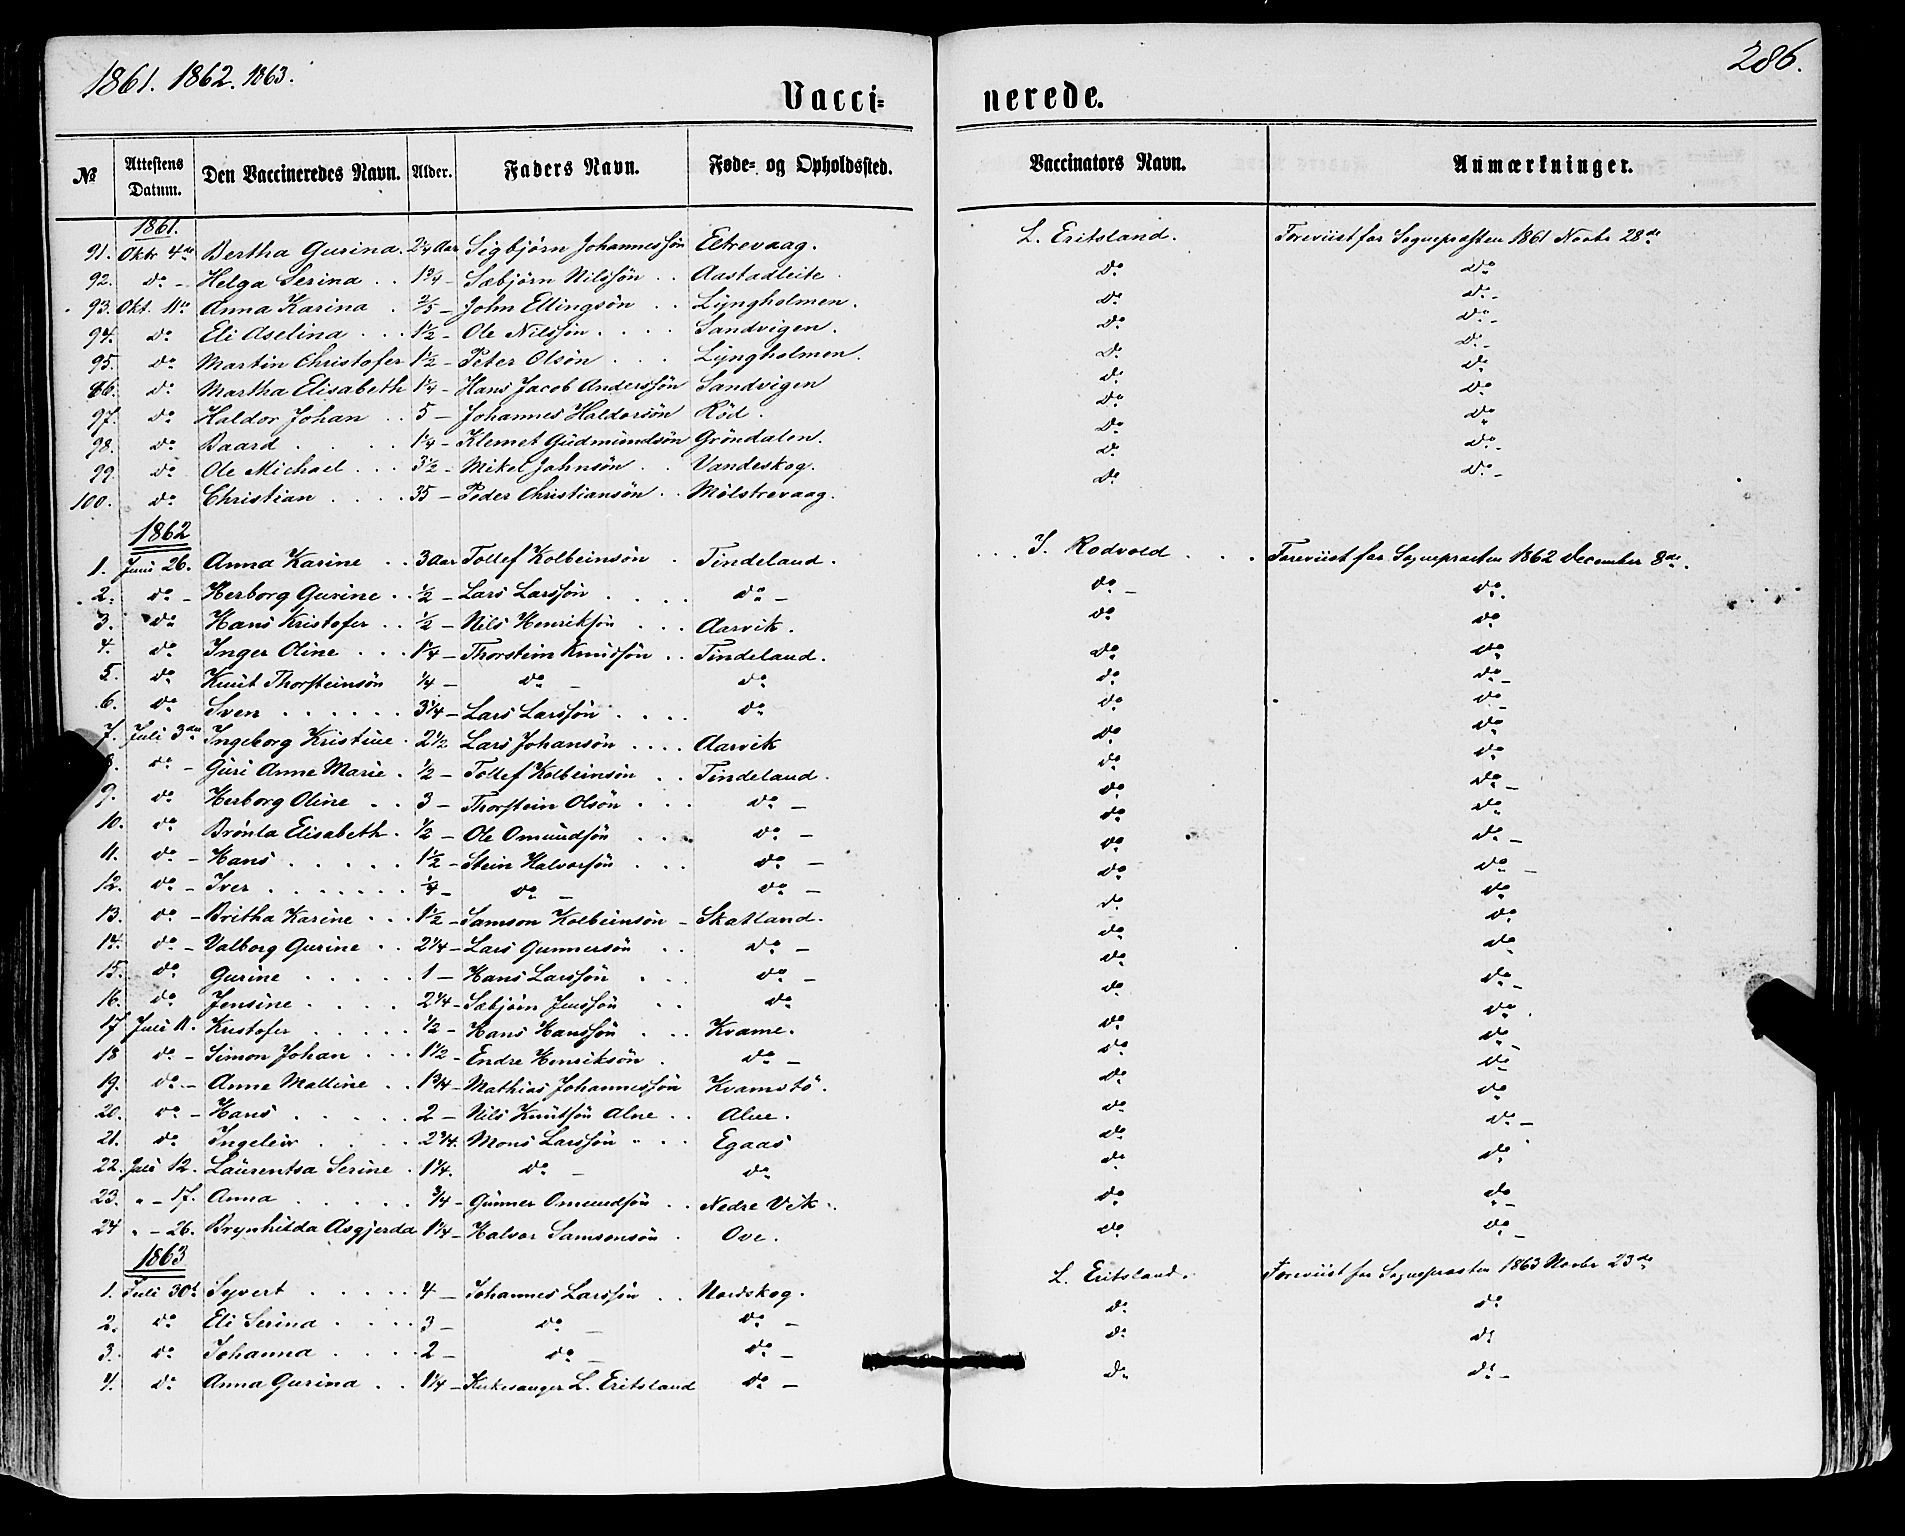 1861. 1862. 1863.
286.
Vacci= nerede.
№ | Attestens Datum. | Den Vaccineredes Navn. | Alder. | Faders Navn. | Føde= og Opholdssted. | Vaccinators Navn. | Anmærkninger.
1861.
91. Oktr 4de Bertha Gurina. 2 1/4 Aar Sigbjörn Johannessön Eltrevaag. L. Eritsland. Foreviist for Sognepræsten 1861 Novbr 28de
92. do - Helga Serina . . 1 3/4 - Sæbjörn Nilssön . . Aastadleite . do do
93. Okt. 11te Anna Karina . 2/5 - John Ellingsön . . Lÿngholmen. do do -
94. do Eli Aselina . . 1 1/2 - Ole Nilssön . . . . Sandvigen. do do -
95. do Martin Christofer 1 1/2 - Peter Olsön . . . Lÿngholmen. do do -
96. do Martha Elisabeth 1 1/4 - Hans Jacob Anderssön Sandvigen do do
97. do Haldor Johan . . 5 - Johannes Haldorsön Röd . do do
98. do Baard . . . . . 1 1/4 - Klemet Gudmundsön Gröndalen. do do
99. do Ole Michael . . . 3 1/2 - Mikel Johnsön . . Vandeskog. do do -
100. do Christian . . . . 35 - Peder Christiansön . . Mölstrevaag. do do -
1862
1. Juni 26. Anna Karine . . 3 Aar Tollef Kolbeinsön . Tindeland. . . . J. Rodvold . . . Foreviist for Sognepræsten 1862 December 8de.
2. do - Herborg Gurine . . 1/2 - Lars Larssön . . . . do - do - do.
3. do Hans Kristofer . . 1/2 - Nils Henriksön . . . Aarvik. do do
4. do Inger Oline . . . 1 1/4 - Thorstein Knudsön . . Tindeland. do do
5. do Knut Thorsteinsön 1/4 - do - do do do -
6. do Sven . . . . . . 3 1/4 - Lars Larssön . . . . do do do
7. Juli 3die Ingeborg Kristine . 2 1/2 Lars Johansön . . . . Aarvik do do
8. do - Guri Anne Marie . 1/2 - Tollef Kolbeinsön . . Tindeland. do do
9. do Herborg Oline . . 3 - Thorstein Olsön . . . do - do do -
10. do Brönla Elisabeth . 1/2 - Ole Omundsön . . . do - do do
11. do - Hans . . . . . 1 1/2 - Stein Halvorsön . . . do - do do -
12. do - Iver . . . . . . . 1/4 - do - do - do do -
13. do - Britha Karine . . . 1 1/2 - Samson Kolbeinsön - Skatland. do do
14. do - Valborg Gurine . . 2 1/4 - Lars Gunnersön . . do - do do
15. do Gurine . . . . . 1 - Hans Larssön . . . do - do do
16. do Jensine . . . . 2 1/4 - Sæbjörn Jenssön . . do do do -
17 Juli 11. Kristofer . . . . . 1/2 - Hans Hanssön . . . Kvame. do do
18 do - Simon Johan . . . 1 1/2 - Endre Henriksön . do - do do -
19. do - Anne Malline . . 1 3/4 - Mathias Johannessön Kvamstö. do do
20. do - Hans . . . . . 2 - Nils Knutsön Alne . . Alne. do do
21. do Ingeleiv . . . . 2 3/4. Mons Larssön . . . Egaas do do -
22. Juli 12. Laurentsa Serine . 1 1/4. do - do do do
23. " - 17. Anna . . . . . 3/4 - Gunner Omundsön . . Nedre Vik . do do -
24 " - 26. Brynhilda Asgjerda 1 1/4 - Halvor Samsonsön . Ove. do do -
1863
1. Juli 30te Syvert . . . . . 4 - Johannes Larssön . . Nordskog. L. Eritsland. Foreviist for Sognepræsten 1863 Novbr 23de
2. do Eli Serina . . . . 3 - do - do - do do
3. do Johanna . . . . 2 - do - do - do do
4. do Anna Gurina . . 1 1/4 - Kirkesanger L. Eritsland do - do do -